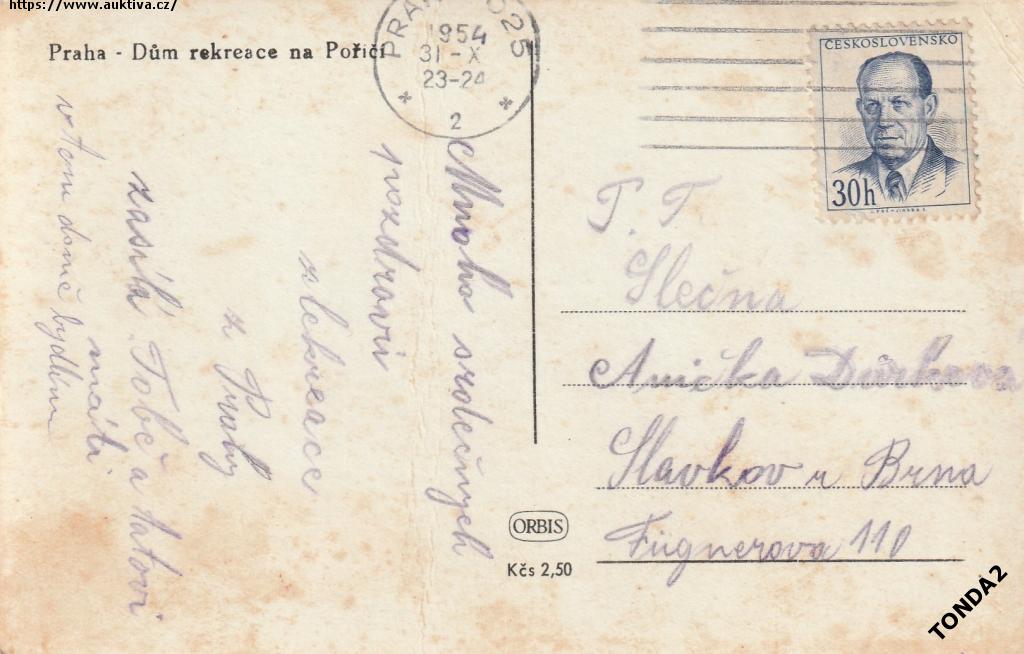 https://www.auktiva.cz/
Praha - Dům rekreace na Poříčí
PRAHA 025
1954
31-X
23-24
2
ČESKOSLOVENSKO
30h
Mnoho srdečných
pozdravů
z lekreace
z Prahy
zasílá Tobě a tatovi
máti
v tom domě bydlím
T. T.
Slečna
Anička Důrková
Slavkov u Brna
Fügnerova 110
ORBIS
Kčs 2,50
TONDA2